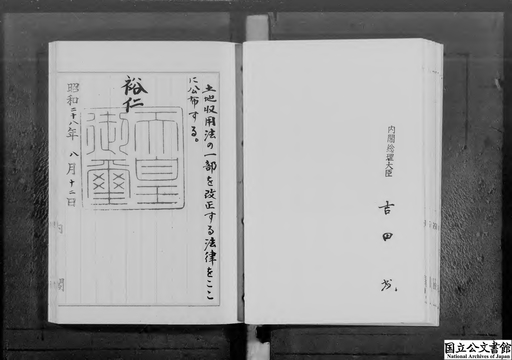 土地収用法の一部を改正する法律をここ
に公布する。
裕仁
天皇御璽
昭和二十八年 八月十二日
内閣総理大臣
吉田茂
国立公文書館
National Archives of Japan